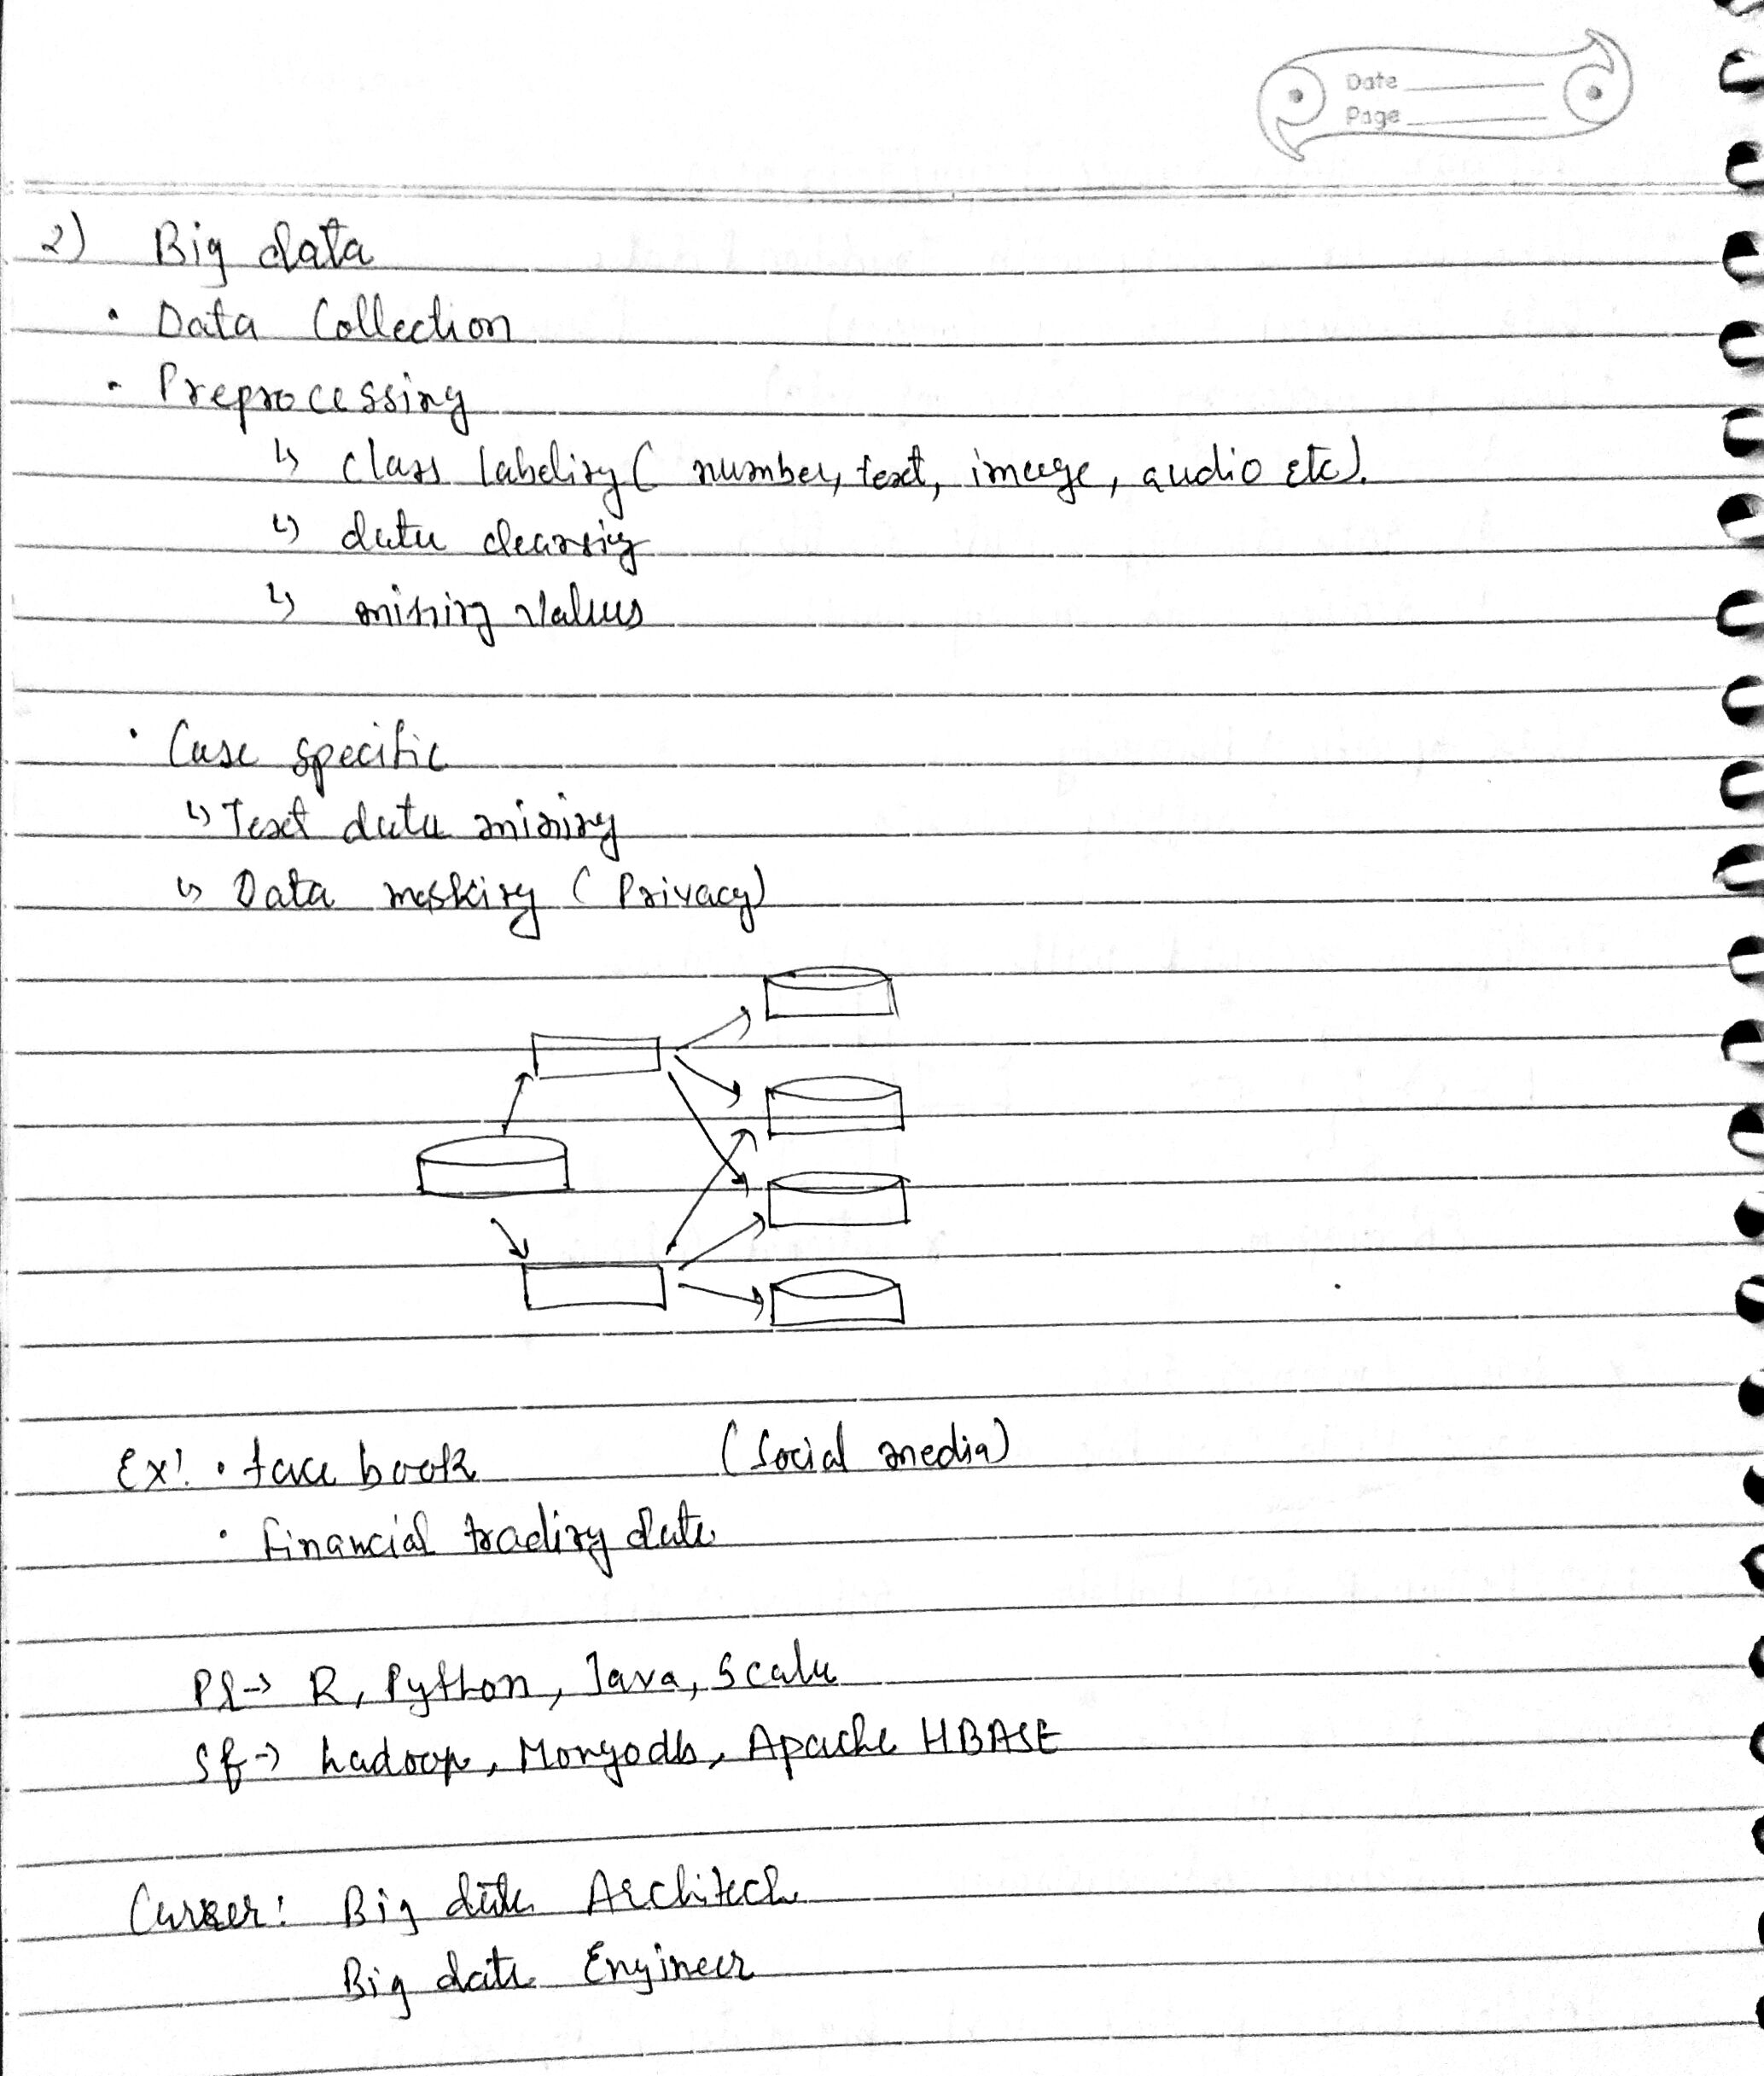 Date
Page
2) Big data
• Data Collection
• Preprocessing
↳ class labeling ( number, text, image, audio etc).
↳ data cleansing
↳ missing values
• Case specific
↳ Text data mining
↳ Data masking ( Privacy)
Ex: • face book (Social media)
• Financial trading data
Pl → R, Python, Java, Scala
Sf → hadoop, Mongodb, Apache HBASE
Career: Big data Architech
Big data Engineer